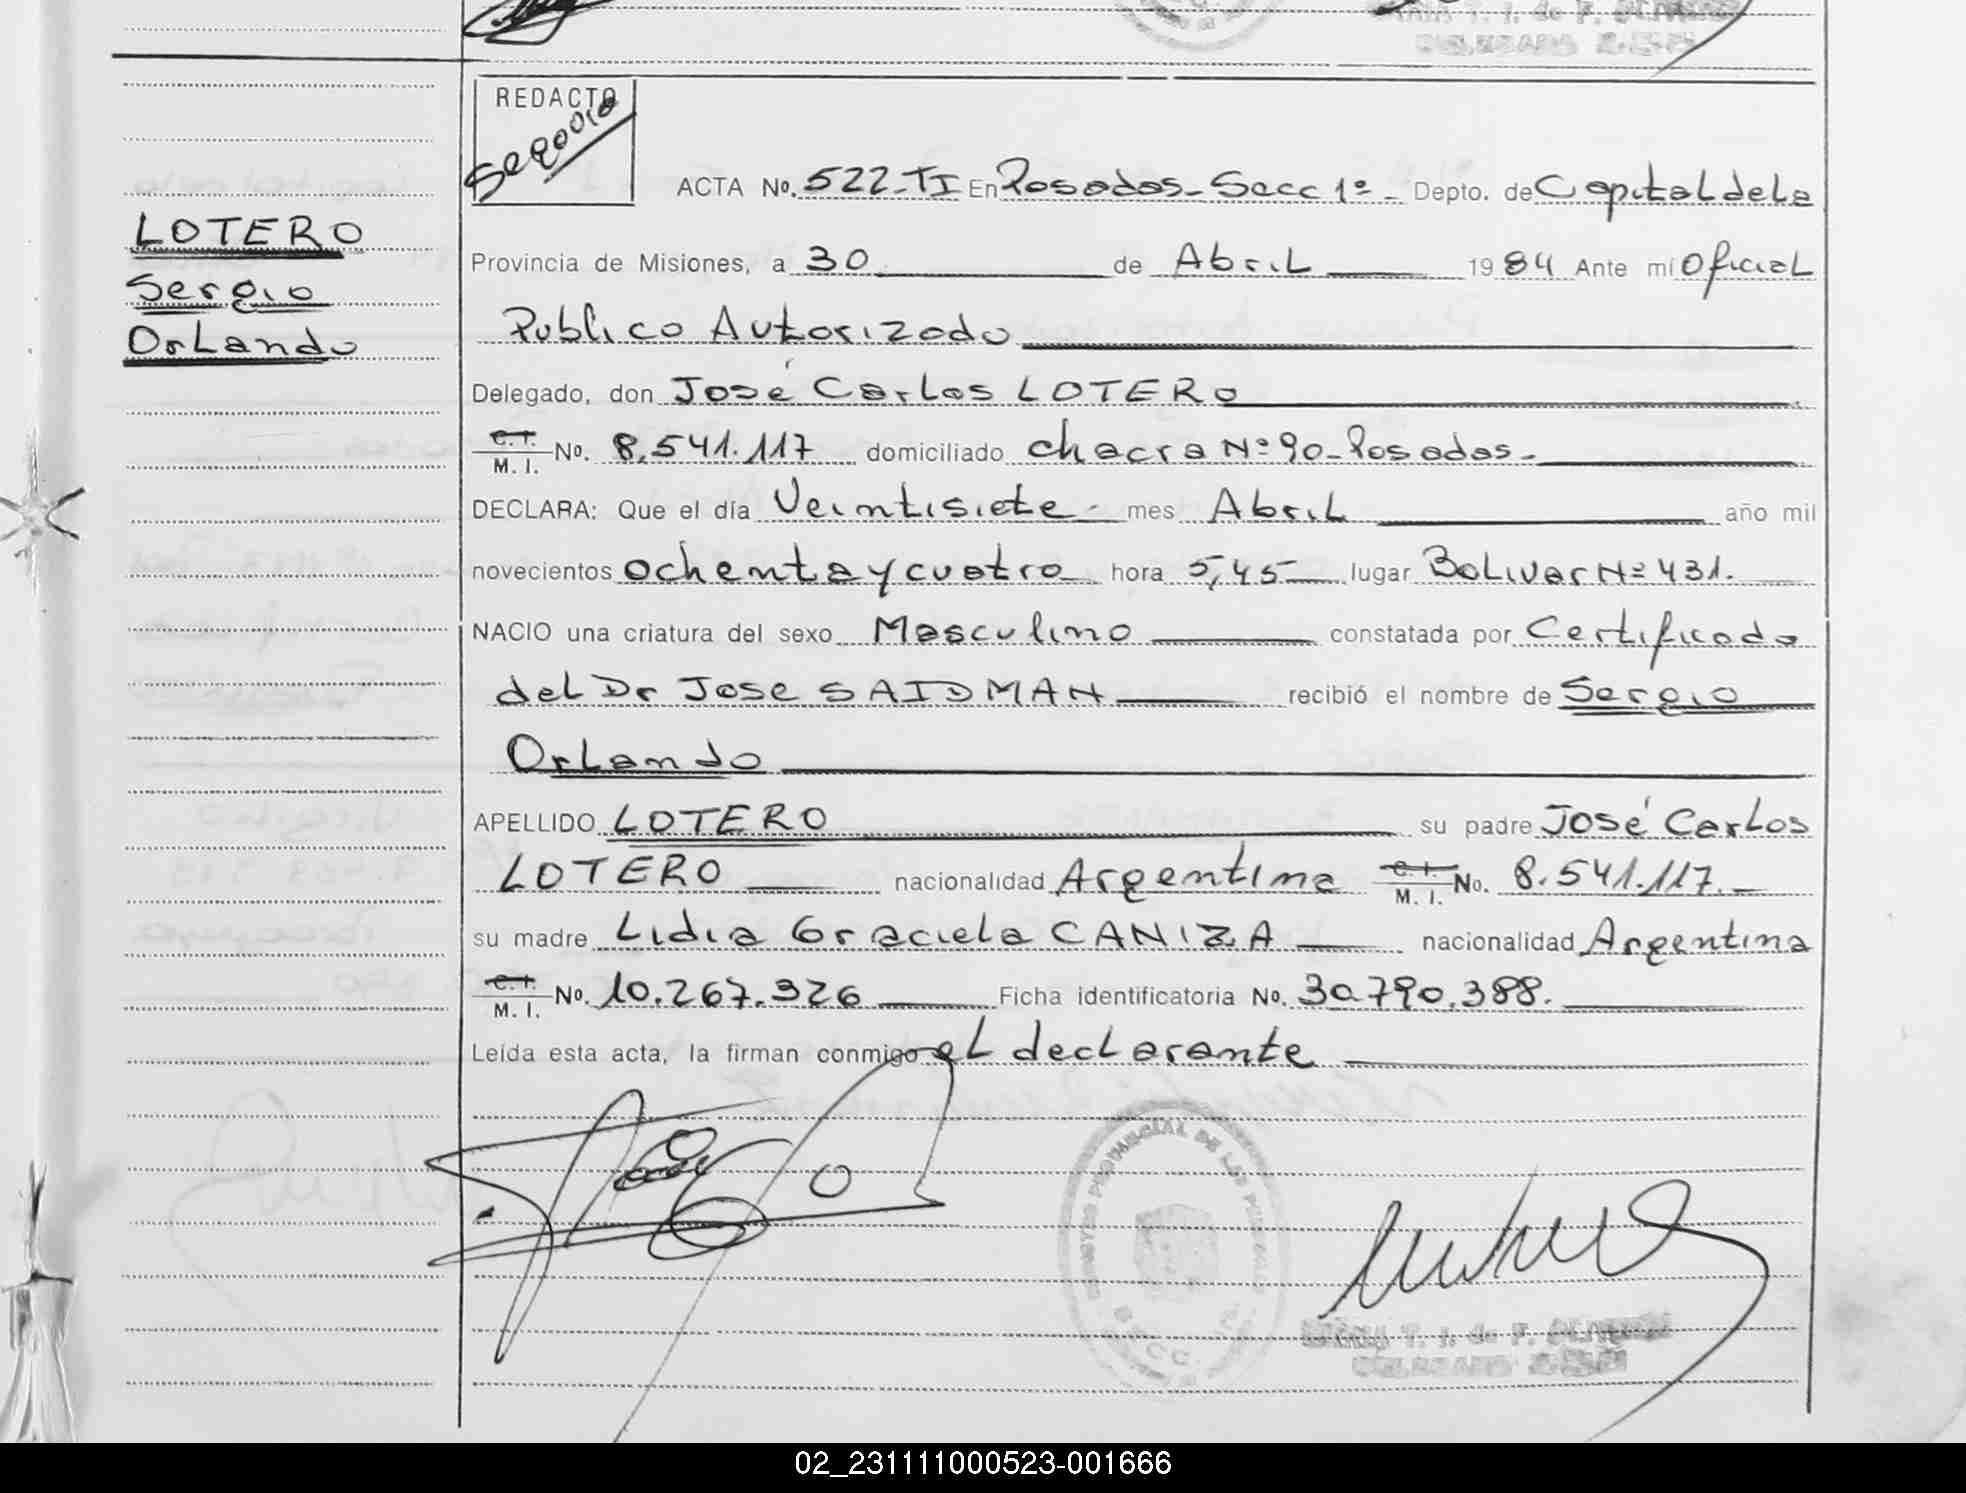 REDACTO
Segovia
ACTA No. 522-TI En Posadas - Secc 1º - Depto. de Capital de la
LOTERO
Sergio
Orlando
Provincia de Misiones, a 30 de Abril 1984 Ante mí Oficial
Publico Autorizado
Delegado, don José Carlos LOTERO
C.I. M. I. No. 8.541.117 domiciliado chacra Nº 90 - Posadas -
DECLARA: Que el día Veintisiete - mes Abril año mil
novecientos ochenta y cuatro hora 5,45 lugar Bolivar Nº 431.
NACIO una criatura del sexo Masculino constatada por Certificado
del Dr Jose SAIDMAN recibió el nombre de Sergio
Orlando
APELLIDO LOTERO su padre José Carlos
LOTERO nacionalidad Argentina C.I. M. I. No. 8.541.117. -
su madre Lidia Graciela CANIZA nacionalidad Argentina
C.I. M. I. No. 10.267.326 Ficha identificatoria No. 30.790.388.
Leída esta acta, la firman conmigo el declarante
REGISTRO PROVINCIAL DE LAS PERSONAS
T. I. de F.
DELEGADA
02_231111000523-001666